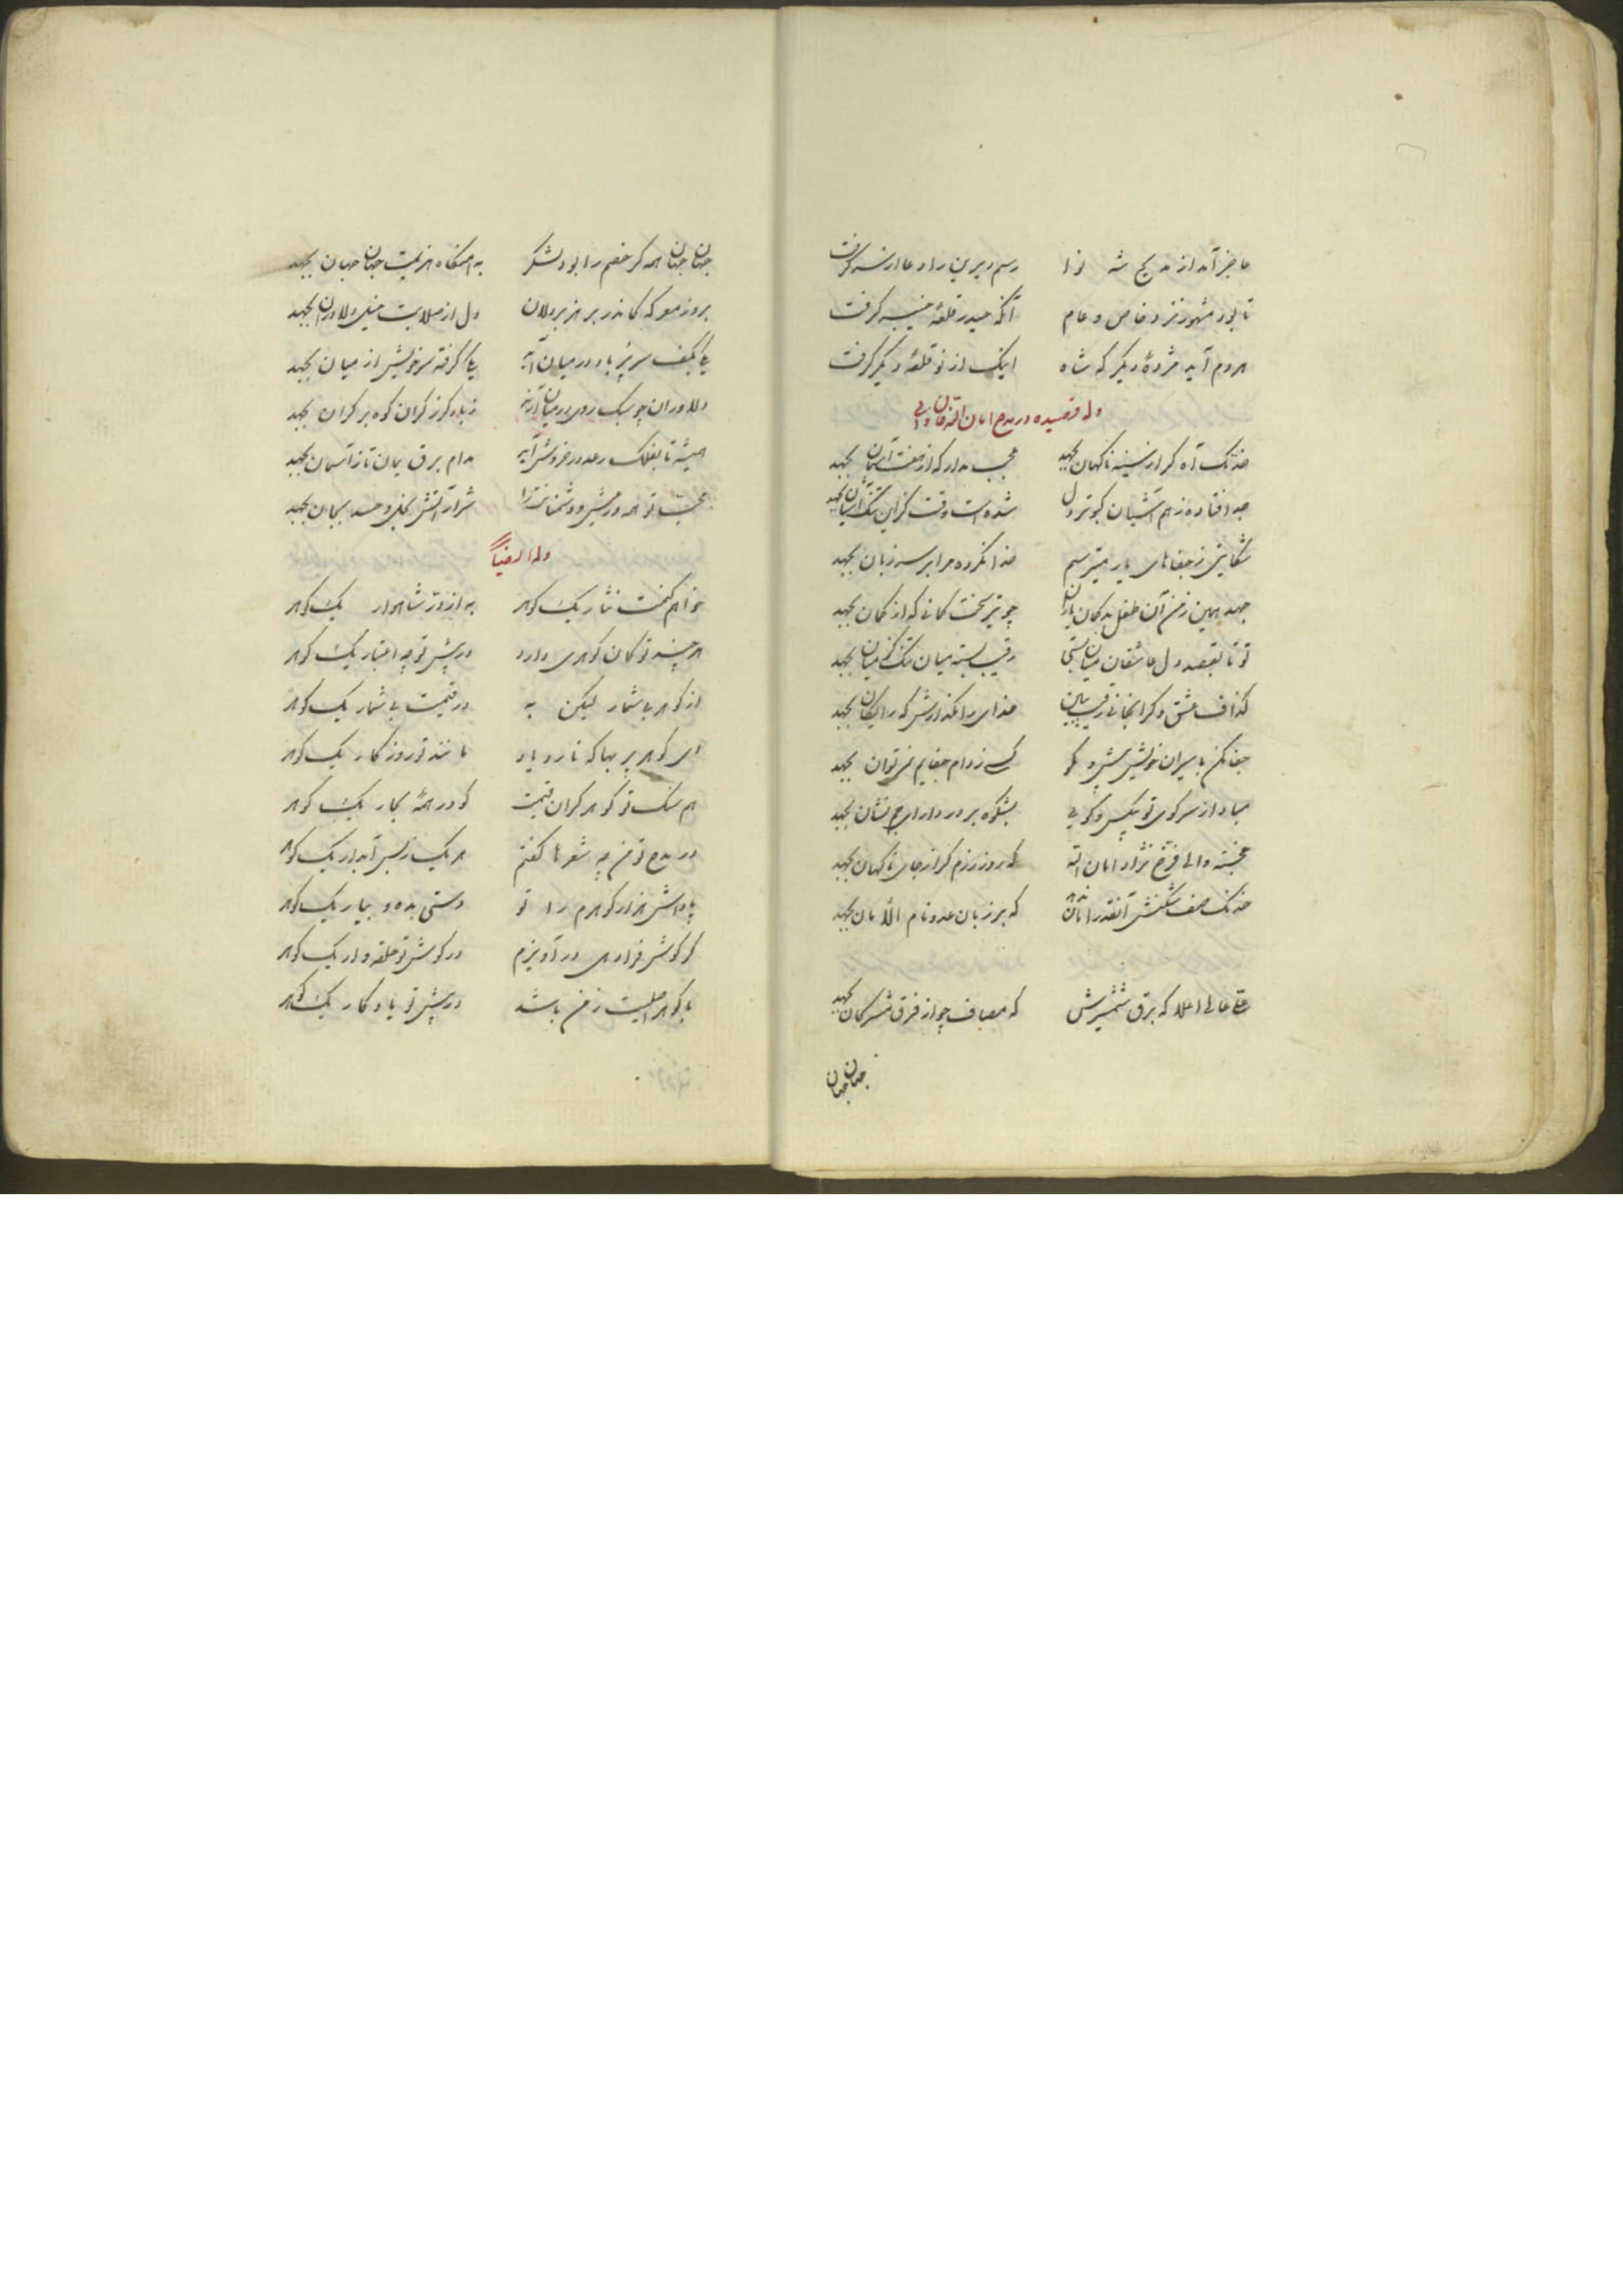 عاجز آمد از مدیح شه نوا رسم دیرین را دعا از سر گرفت
تا بود مشهور نزد خاص و عام آنکه حیدر قلعهٔ خیبر گرفت
هر دم آید مژدهٔ دیگر که شاه اینک از نو قلعهٔ دیگر گرفت
وله قصیده در مدح امان الله خان والی
خدنک آه کر از سینه ناکهان بجهد عجب مدار که از هفت آسمان بجهد
جدا فتاده ز هم آشیان کبوتر دل شده است وقت کزین تنک آشیان بجهد
شکایتی ز جفاهای یار میترسم خدا نکرده مرا بر سر زبان بجهد
جهد همین ز من آن طفل بدکمان یاران چو تیر سخت کمانی که از کمان بجهد
تو تا بقصد دل عاشقان میان بستی رقیب بسته میان تنک کز میان بجهد
کذاف عشق و کرانجانی رقیب ببین خدای را مکذارش که رایکان بجهد
جفا مکن باسیران خویش پیشه مکو کسی ز دام جفایم نمیتوان بجهد
مباد از سر کوی تو بیکس و کویی بشکوه بر در دارای جم نشان بجهد
خجسته والی فرخ نژاد امان الله که روز رزم کر از جای ناکهان بجهد
خدنک صف شکنش آنقدر امان که بر زبان عدو نام الأمان بجهد
علی عالی اعلا که برق شمشیرش که مصاف چو از فرق مشرکان بجهد
جهان جهان
جهان جهان همه کر خصم را بود لشکر به امتکاه هزیمت جهان جهان بجهد
بروز معرکه کاندر بر هزبر دلان دل از صلابت خیل دلاوران بجهد
یکی بکف سر پر باد در میان آید یکی کرفته سر خویش از میان بجهد
دلاوران چو سبک روی در میان آرند ز باد کرز کران کوه بر کران بجهد
همیشه تا بفلک رعد در خروش آید مدام برق یمان تا ز آسمان بجهد
محب تو همه در عیش و دشمنانت را شرار آتش بخل و حسد بجان بجهد
وله ایضاً
خواهم کنمت نثار یک کوهر به از در شاهوار یک کوهر
هر چند تو کان کوهری دارد در پیش تو چه اعتبار یک کوهر
از کوهر بی شمار لیکن به در قیمت بی شمار یک کوهر
ای کوهر پر بها که نارد یاد مانند تو روزکار یک کوهر
هم سنک تو کوهر کران قیمت کو در همهٔ بحار یک کوهر
در مدح تو من چه شعرها کفتم هر یک ز پس آبدار یک کوهر
پاداش هزار کوهرم را تو دستی بده و بیار یک کوهر
کر کوشش فزا دری در آویزم در کوش تو حلقه وار یک کوهر
با کوهر اصلیت ز من باشد در پیش تو یادکار یک کوهر